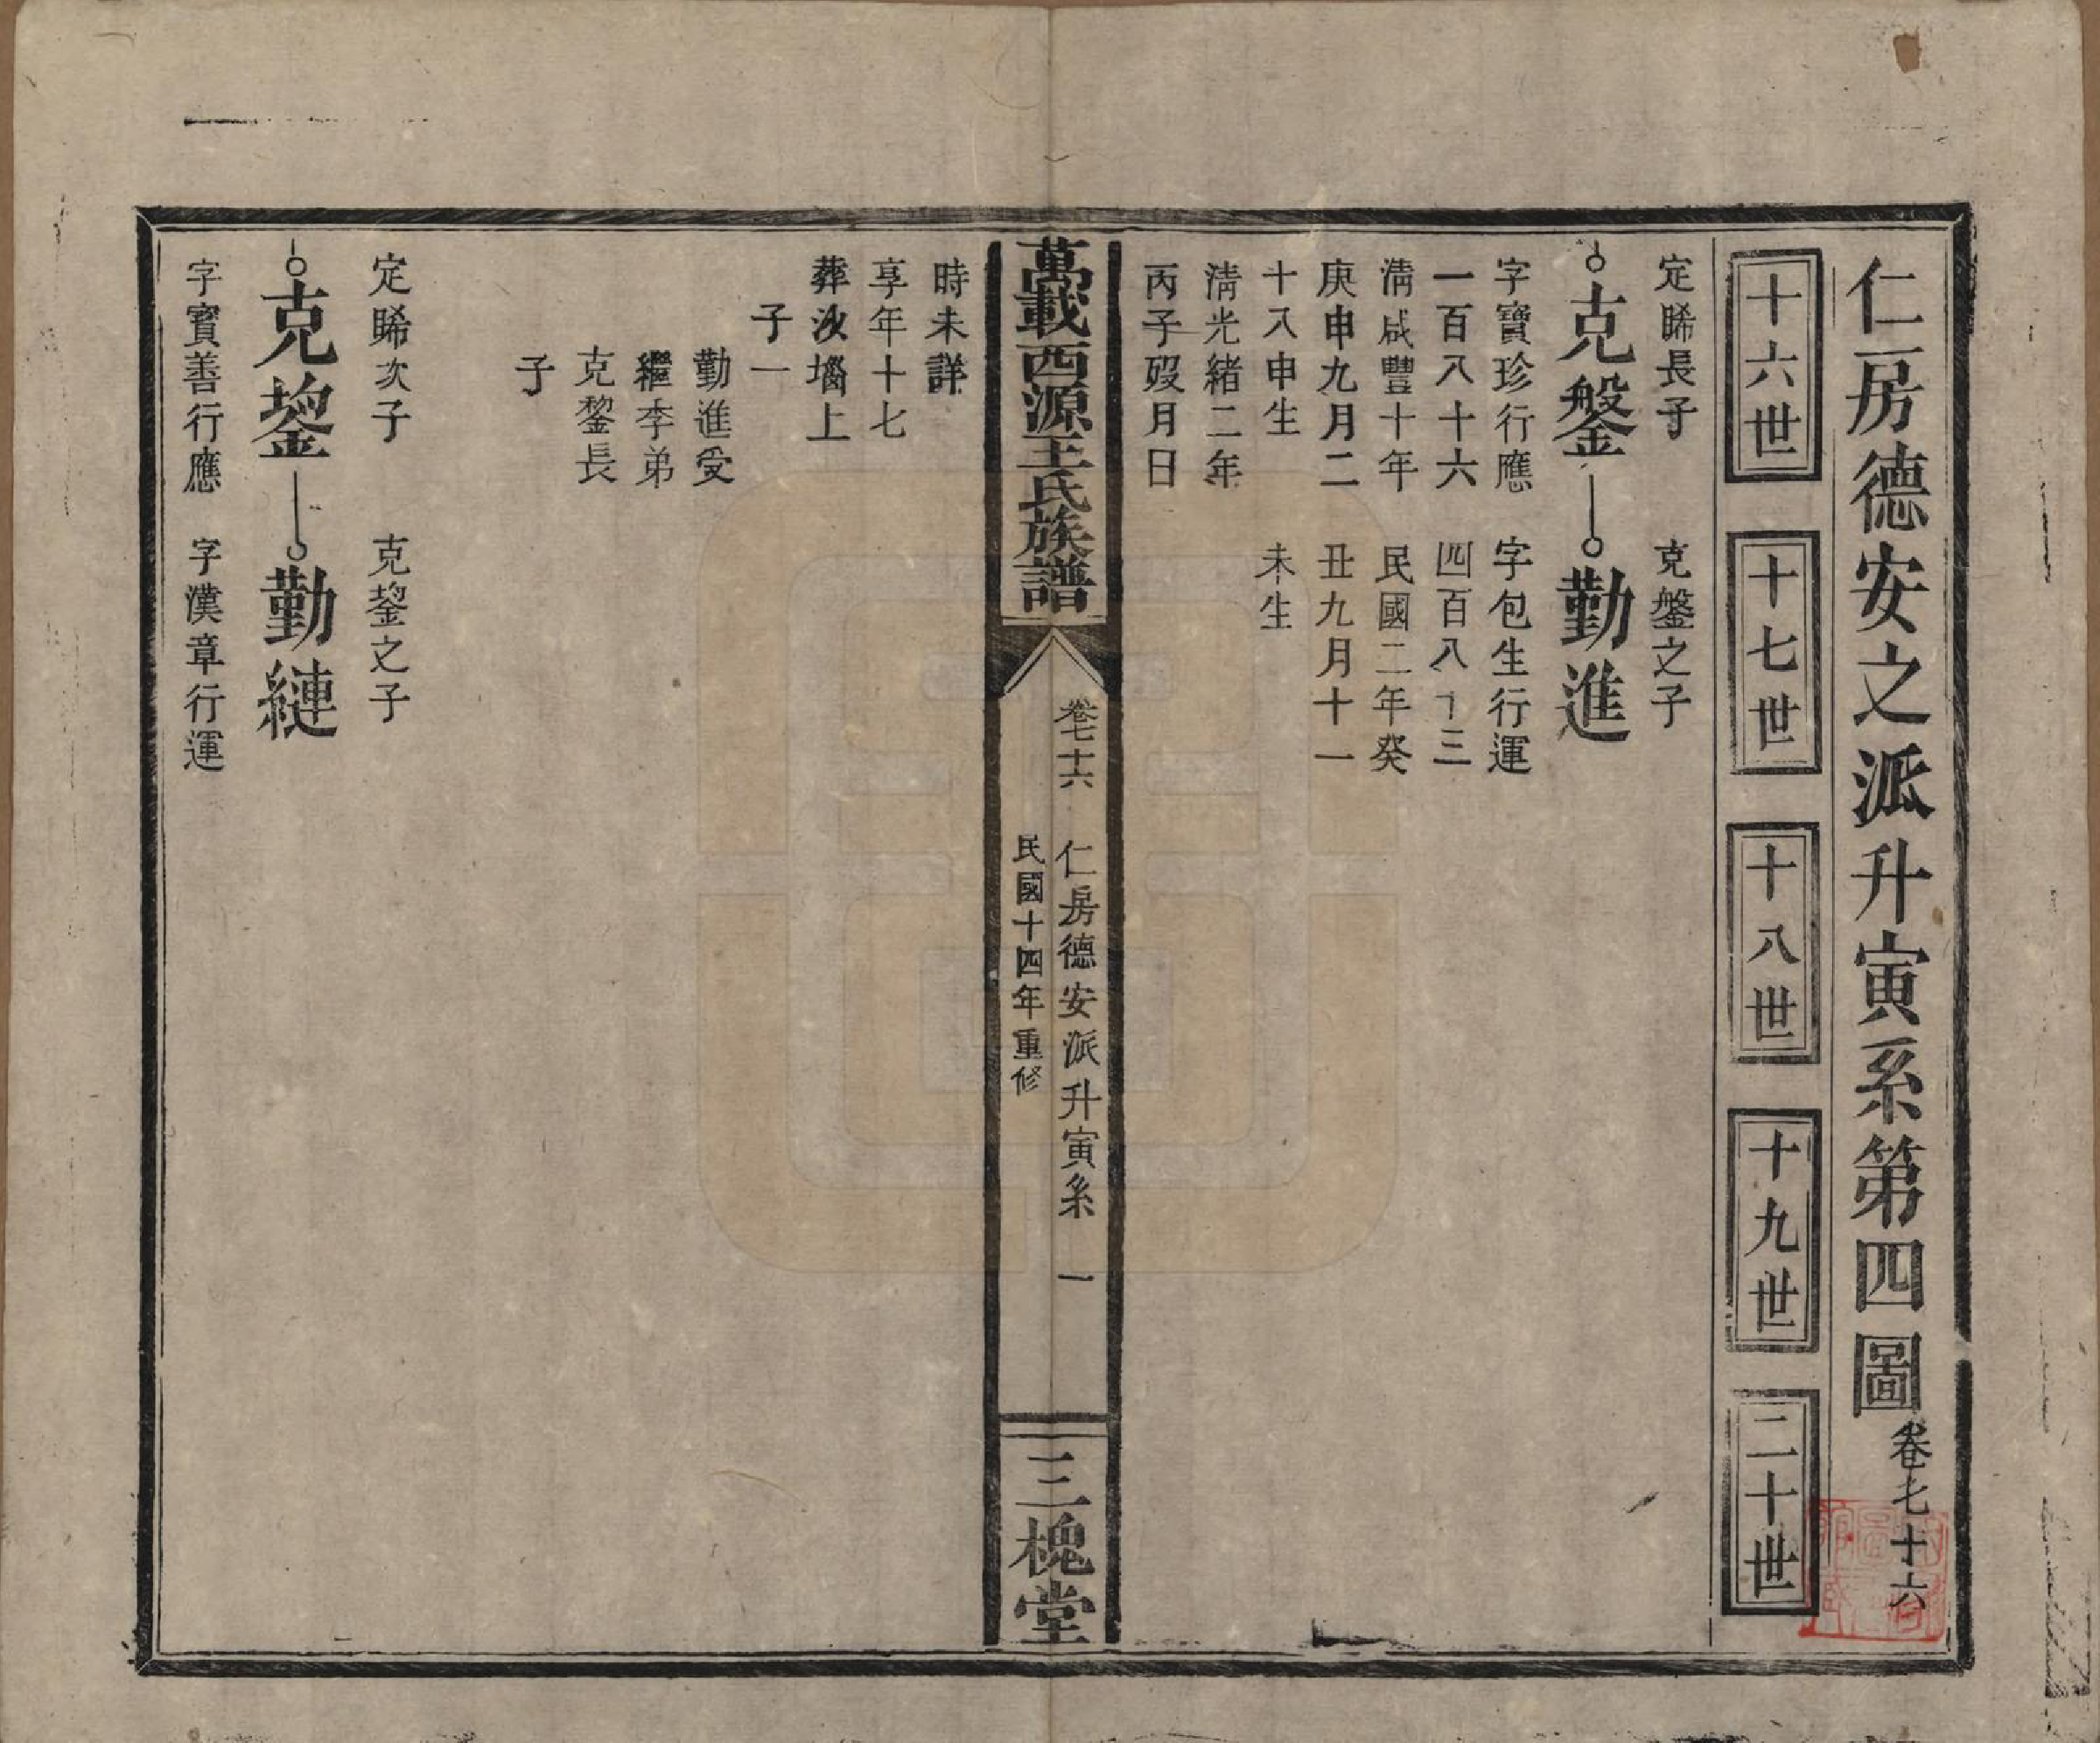 仁房德安之派升寅系第四圖 卷七十六
十六世
十七世
十八世
十九世
二十世
定睎長子
克鎜
字寶珍行應
一百八十六
淸咸豐十年
庚申九月二
十八申生
淸光緒二年
丙子歿月日
克鎜之子
勤進
字包生行運
四百八十三
民國二年癸
丑九月十一
未生
萬載西源王氏族譜
卷七十六 仁房德安派升寅系 一
民國十四年重修
三槐堂
時未詳
享年十七
葬沙堖上
子一
勤進受
繼李弟
克鋆長
子
定睎次子
克鋆
字寶善行應
克鋆之子
勤縺
字漢章行運